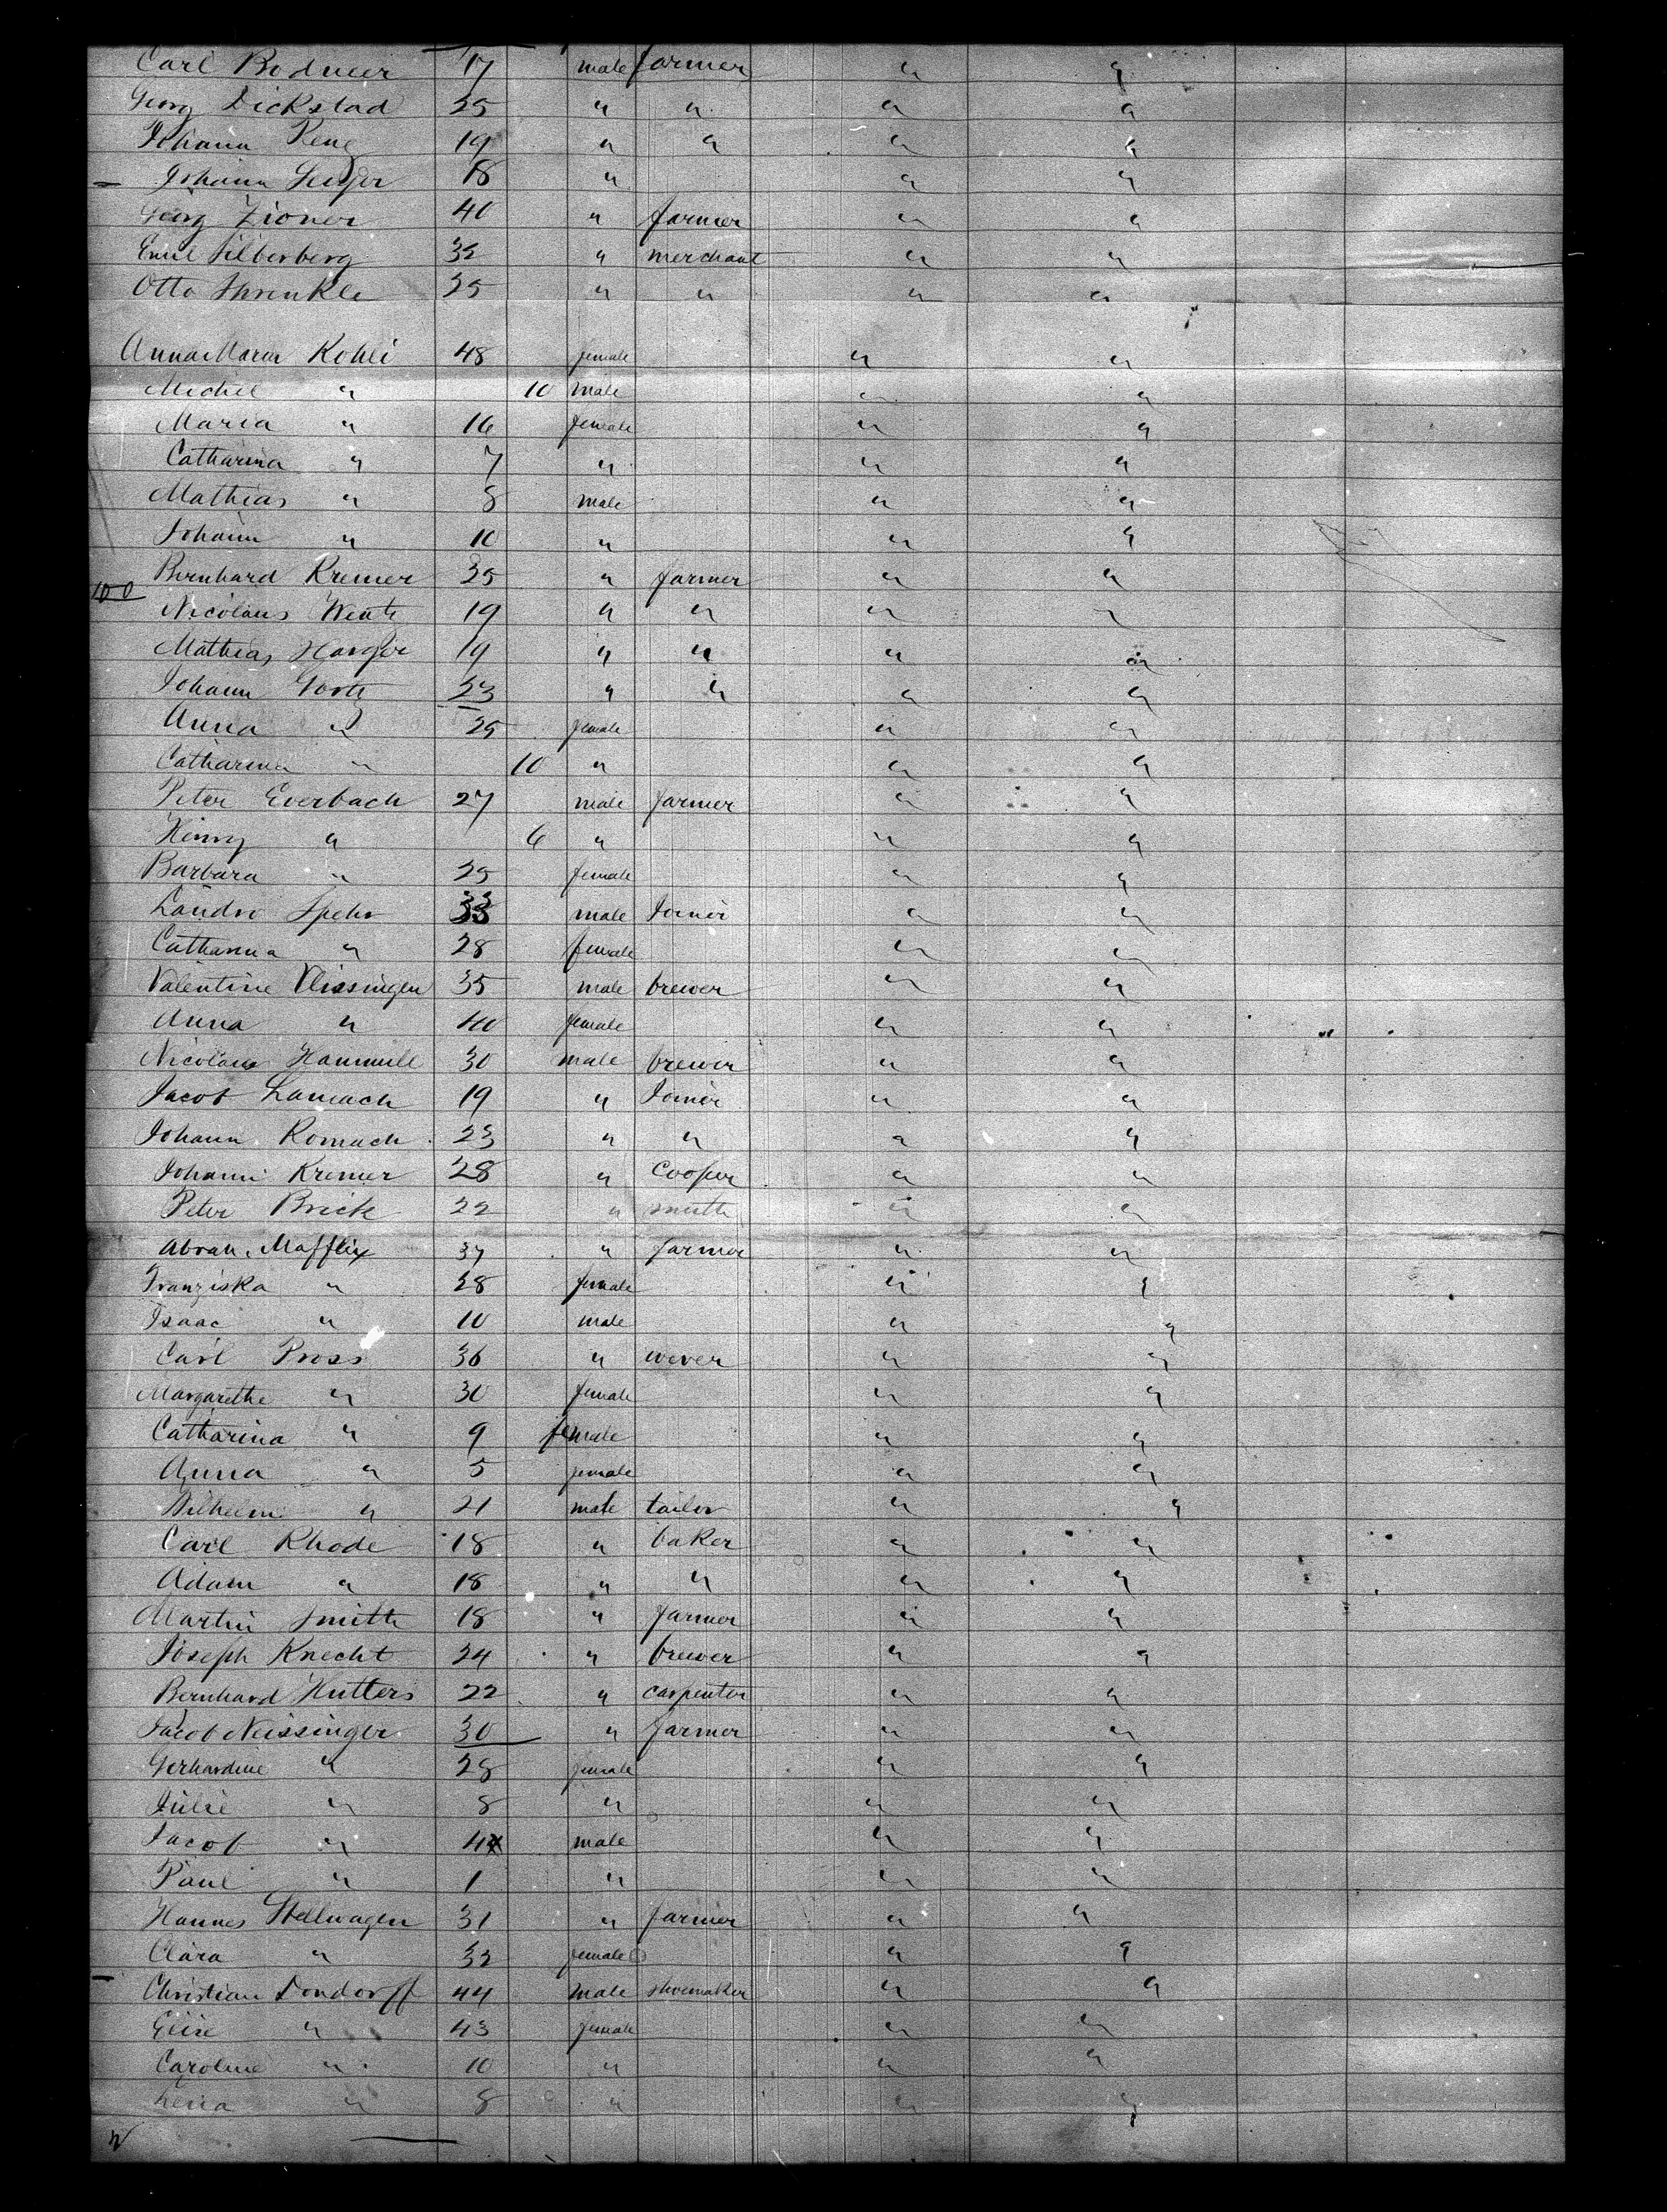 Carl Bodmer 17 male farmer " "
Georg Dickstad 25 " " " "
Johann 19 " " " "
Johann 18 " " "
Georg Zioner 40 " farmer " "
Emil Silberberg 32 " merchant " "
Otto Sprenkle 25 " " " "
Anna Maria Kohli 48 female " "
Michel " 10 male " "
Maria " 16 female " "
Catharina " 7 " " "
Mathias " 8 male " "
Johann " 10 " " "
Bernhard Kremer 25 " farmer " "
100
Nicolaus 19 " " " "
Mathias 19 " " " "
Johann 23 " " " "
Anna " 25 female " "
Catharina " 10 " " "
Peter Everbach 27 male farmer " "
Henry " 6 " " "
Barbara " 25 female " "
Spehr 33 male Joiner " "
Catharina " 28 female " "
Valentine Vlissingen 35 male brewer " "
Anna " 40 female " "
Nicolaus Hammell 30 male brewer " "
Jacob Lamach 19 " Joiner " "
Johann Romach 23 " " " "
Johann Kremer 28 " Cooper " "
Peter Brick 22 " smith " "
Abrah. Mafflix 37 " farmer " "
Franziska " 28 female " "
Isaac " 10 male " "
Carl Pross 36 " wever " "
Margarethe " 30 female " "
Catharina " 9 female " "
Anna " 5 female " "
Wilhelm " 21 male tailor " "
Carl Rhode 18 " baker " "
Adam " 18 " " " "
Martin Smith 18 " farmer " "
Joseph Knecht 24 " brewer " "
Bernhard Hutters 22 " carpenter " "
Jacob Neissinger 30 " farmer " "
Gerhardine " 28 female " "
Julie " 8 " " "
Jacob " 4 male " "
Paul " 1 " " "
Hannes Stellwagen 31 " farmer " "
Clara " 32 female " "
Christian Dondorff 44 male shoemaker " "
Elise " 43 female " "
Caroline " 10 " " "
Lena " 8 " " "